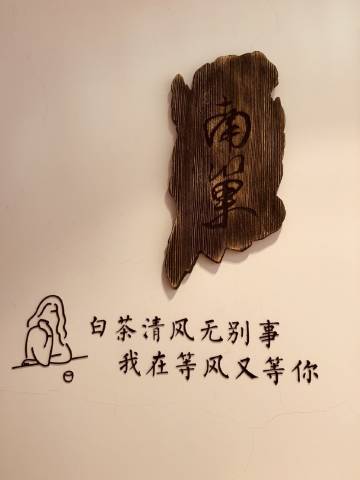 南
巢
白茶清风无别事
我在等风又等你